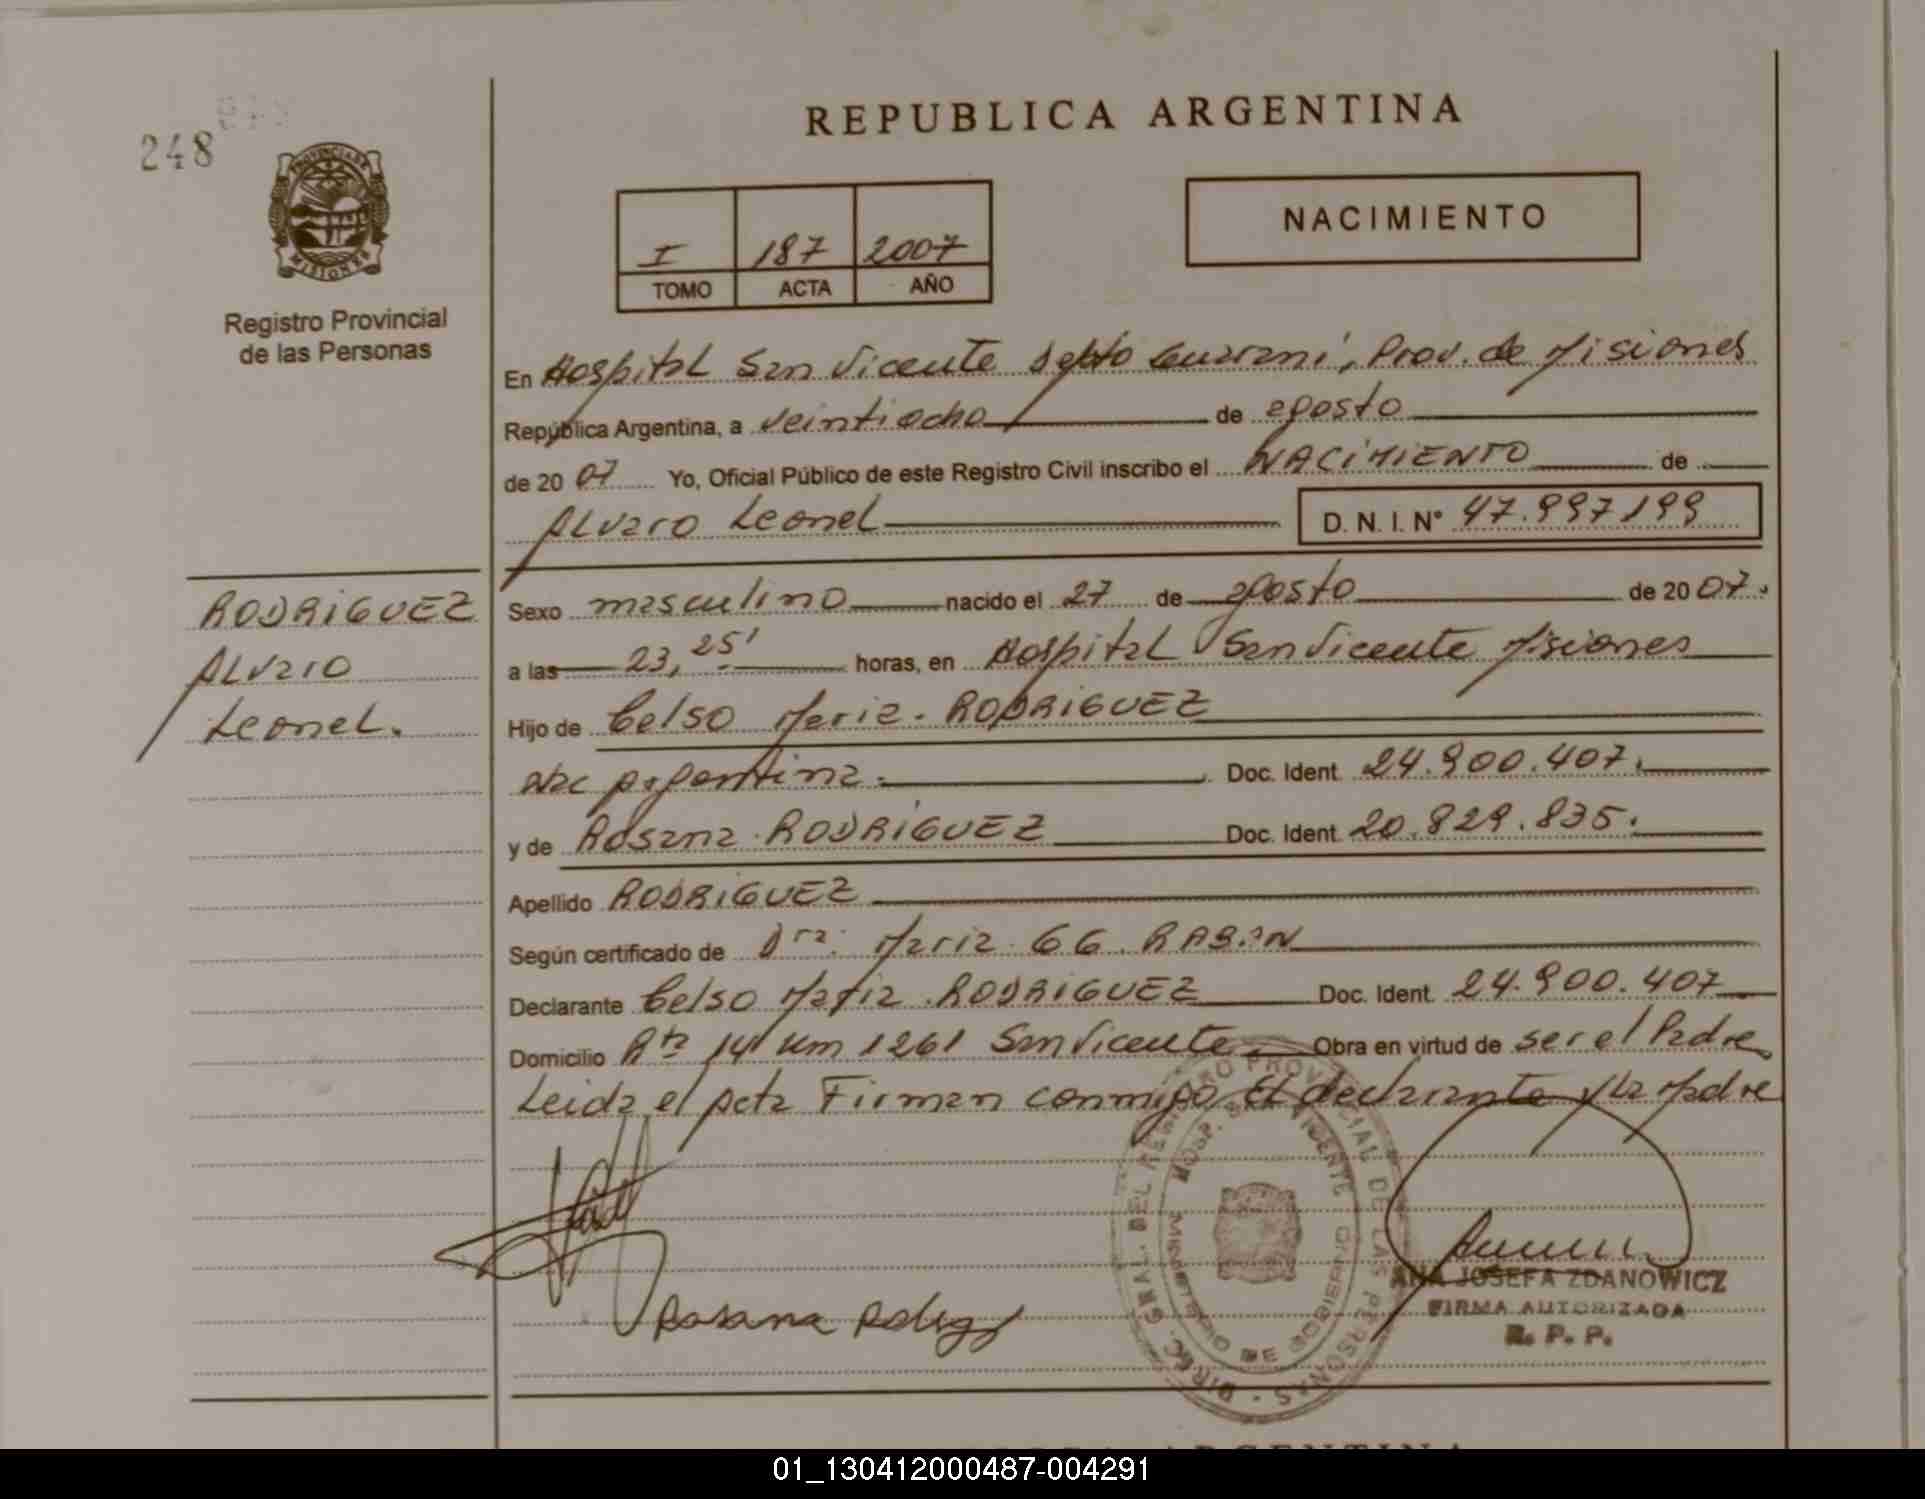 REPUBLICA ARGENTINA
248
PROVINCIA DE
MISIONES
Registro Provincial
de las Personas
NACIMIENTO
I 187 2007
TOMO ACTA AÑO
En Hospital San Vicente Depto Guarani, Prov. de Misiones
República Argentina, a veintiocho de agosto
de 2007 Yo, Oficial Público de este Registro Civil inscribo el NACIMIENTO de
Alvaro Leonel D. N. I. Nº 47.997.199
RODRIGUEZ
Alvaro
Leonel.
Sexo masculino nacido el 27 de agosto de 2007.
a las 23,25' horas, en Hospital San Vicente Misiones
Hijo de Celso Maria. RODRIGUEZ
Nac Argentina. Doc. Ident. 24.900.407.
y de Rosana. RODRIGUEZ Doc. Ident. 20.829.835.
Apellido RODRIGUEZ
Según certificado de Dra. Maria GG.
Declarante Celso Maria. RODRIGUEZ Doc. Ident. 24.900.407
Domicilio Rta 14 Km 1261 San Vicente. Obra en virtud de ser el Padre
Leida el Acta Firman conmigo El declarante y la Madre
DIREC. GRAL. DEL REGISTRO PROVINCIAL DE LAS PERSONAS
HOSP. SAN VICENTE
MINISTERIO DE GOBIERNO
Rosana
ANA JOSEFA ZDANOWICZ
FIRMA AUTORIZADA
R. P. P.
01_130412000487-004291